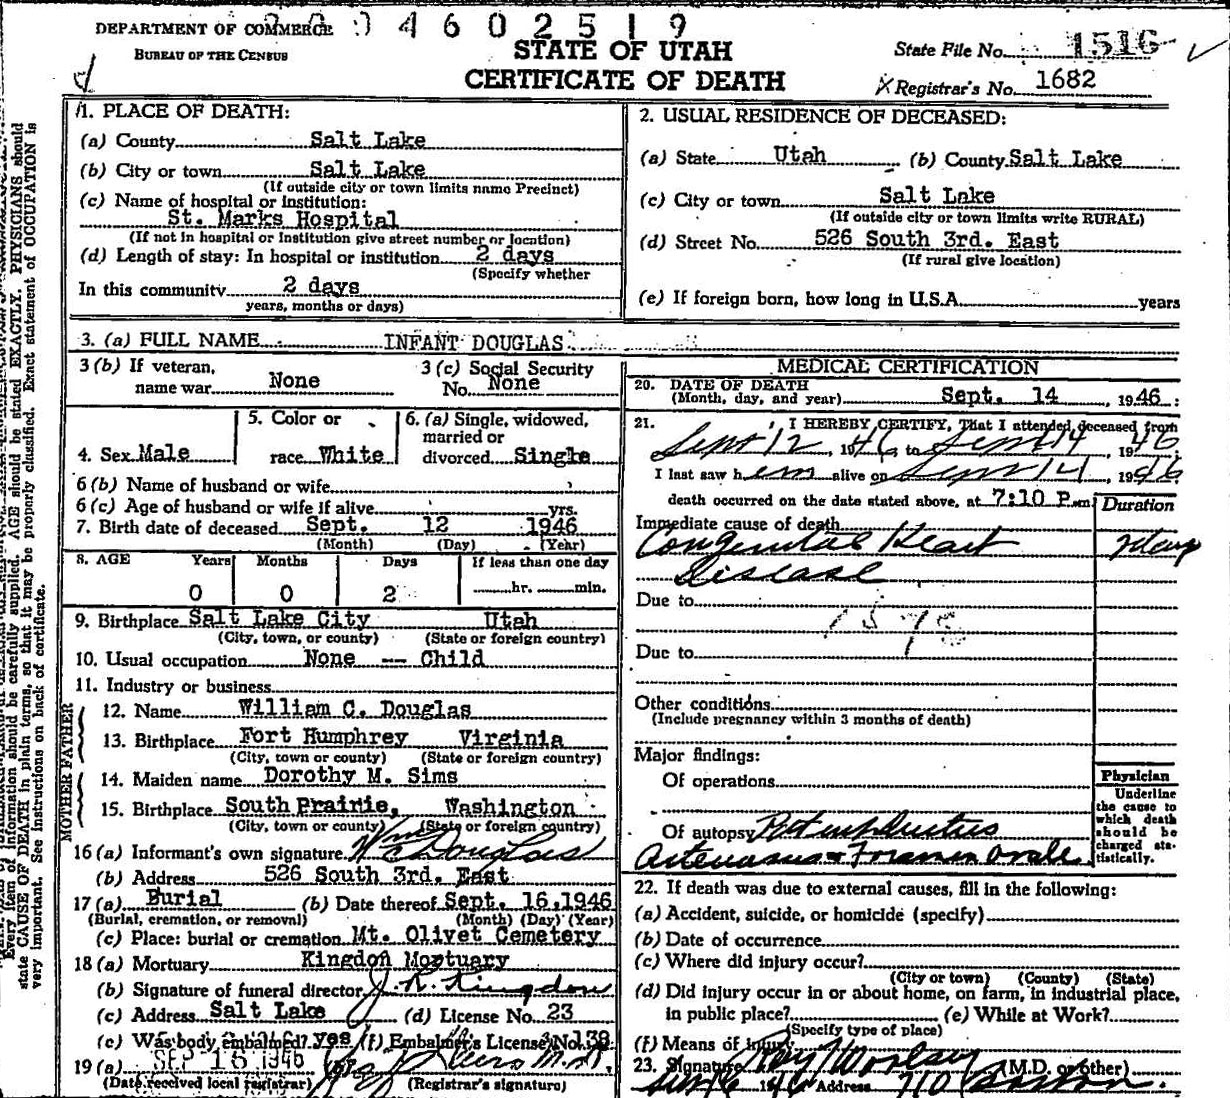 DEPARTMENT OF COMMERCE
0 4 6 0 2 5 1 9
BUREAU OF THE CENSUS
STATE OF UTAH
CERTIFICATE OF DEATH
State File No. 1516
Registrar's No. 1682
1. PLACE OF DEATH:
(a) County Salt Lake
(b) City or town Salt Lake
(If outside city or town limits name Precinct)
(c) Name of hospital or institution:
St. Marks Hospital
(If not in hospital or institution give street number or location)
(d) Length of stay: In hospital or institution 2 days
(Specify whether
In this community 2 days
years, months or days)
2. USUAL RESIDENCE OF DECEASED:
(a) State Utah (b) County Salt Lake
(c) City or town Salt Lake
(If outside city or town limits write RURAL)
(d) Street No. 526 South 3rd. East
(If rural give location)
(e) If foreign born, how long in U.S.A. years
3. (a) FULL NAME INFANT DOUGLAS
3 (b) If veteran, name war None
3 (c) Social Security No. None
4. Sex Male
5. Color or race White
6. (a) Single, widowed, married or divorced Single
6 (b) Name of husband or wife
6 (c) Age of husband or wife if alive yrs.
7. Birth date of deceased Sept. 12 1946
(Month) (Day) (Year)
8. AGE Years Months Days If less than one day
0 0 2 hr. min.
9. Birthplace Salt Lake City Utah
(City, town, or county) (State or foreign country)
10. Usual occupation None -- Child
11. Industry or business
FATHER
12. Name William C. Douglas
13. Birthplace Fort Humphrey Virginia
(City, town or county) (State or foreign country)
MOTHER
14. Maiden name Dorothy M. Sims
15. Birthplace South Prairie, Washington
(City, town or county) (State or foreign country)
16 (a) Informant's own signature Wm C Douglas
(b) Address 526 South 3rd. East
17 (a) Burial (b) Date thereof Sept. 16, 1946
(Burial, cremation, or removal) (Month) (Day) (Year)
(c) Place: burial or cremation Mt. Olivet Cemetery
18 (a) Mortuary Kingdon Mortuary
(b) Signature of funeral director J. R. Kingdon
(c) Address Salt Lake (d) License No. 23
(e) Was body embalmed? yes (f) Embalmer's License No. 38
19 (a) SEP 16 1946 (b) M.D.
(Date received local registrar) (Registrar's signature)
MEDICAL CERTIFICATION
20. DATE OF DEATH
(Month, day, and year) Sept. 14, 1946
21. I HEREBY CERTIFY, That I attended deceased from
Sept 12, 1946 to Sept 14, 1946
I last saw h em alive on Sept 14, 1946
death occurred on the date stated above, at 7:10 P.m.
Duration
Immediate cause of death
Congenital Heart 2 days
Disease
Due to
Due to
Other conditions
(Include pregnancy within 3 months of death)
Major findings:
Of operations
Of autopsy Patent Ductus
Arteriosus & Foramen Ovale
Physician
Underline the cause to which death should be charged statistically.
22. If death was due to external causes, fill in the following:
(a) Accident, suicide, or homicide (specify)
(b) Date of occurrence
(c) Where did injury occur?
(City or town) (County) (State)
(d) Did injury occur in or about home, on farm, in industrial place,
in public place? (e) While at Work?
(Specify type of place)
(f) Means of injury
23. Signature Ray Woolsey (M.D. or other)
1946 Address 710 Boston
Every item of information should be carefully supplied. AGE should be stated EXACTLY. PHYSICIANS should
state CAUSE OF DEATH in plain terms, so that it may be properly classified. Exact statement of OCCUPATION is
very important. See instructions on back of certificate.